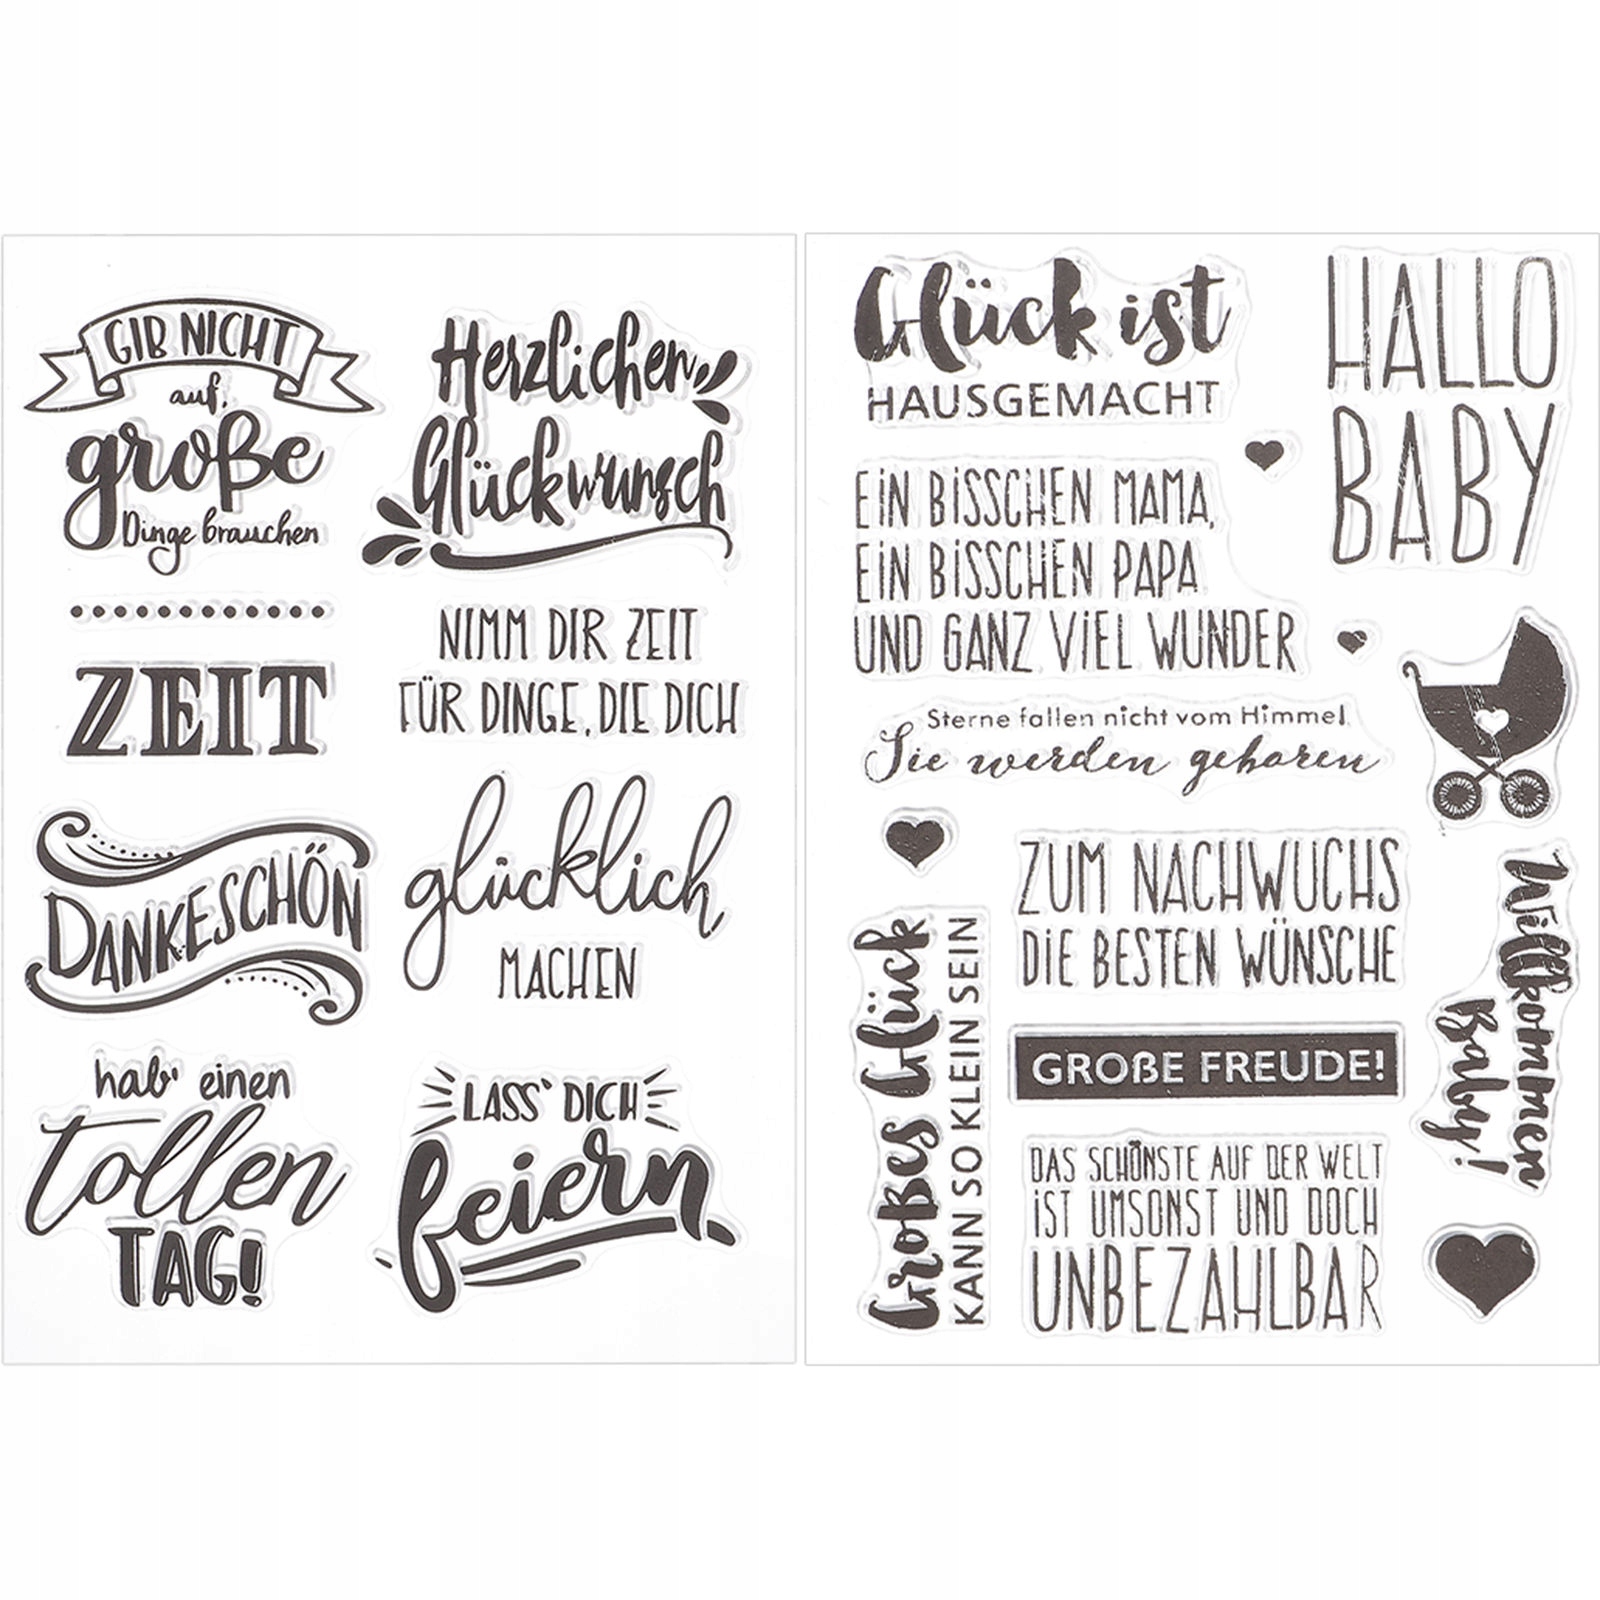 GIB NICHT
auf,
große
Dinge brauchen
ZEIT
DANKESCHÖN
hab' einen
tollen
TAG!
Herzlichen
Glückwunsch
NIMM DIR ZEIT
FÜR DINGE, DIE DICH
glücklich
MACHEN
LASS' DICH
feiern
Glück ist
HAUSGEMACHT
HALLO
BABY
EIN BISSCHEN MAMA,
EIN BISSCHEN PAPA
UND GANZ VIEL WUNDER
Sterne fallen nicht vom Himmel
Sie werden geboren
ZUM NACHWUCHS
DIE BESTEN WÜNSCHE
Großes Glück
KANN SO KLEIN SEIN
GROßE FREUDE!
Willkommen
Baby!
DAS SCHÖNSTE AUF DER WELT
IST UMSONST UND DOCH
UNBEZAHLBAR